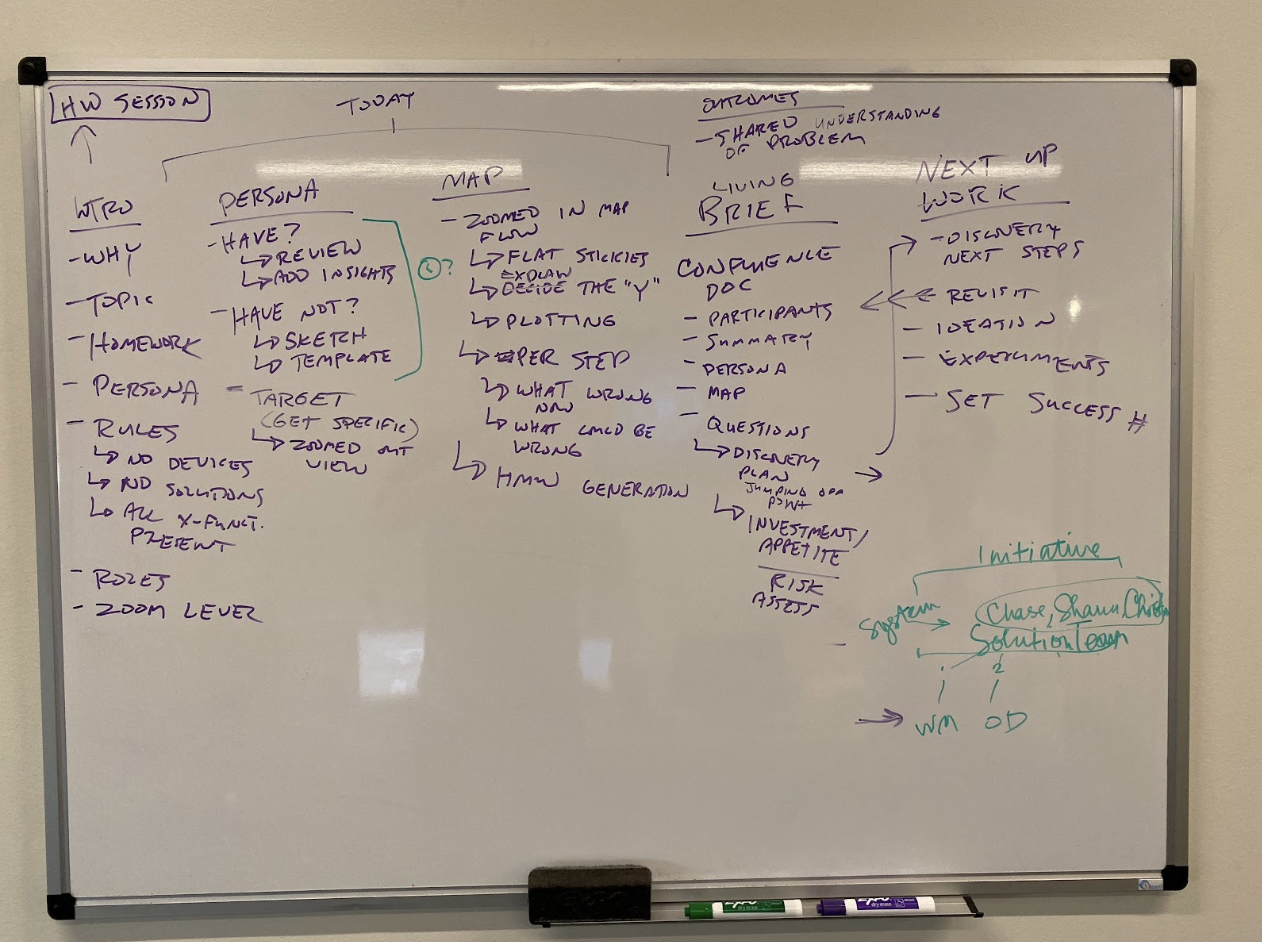 HW SESSION
TODAY
INTRO
- WHY
- TOPIC
- HOMEWORK
- PERSONA
- RULES
↳ NO DEVICES
↳ NO SOLUTIONS
↳ ALL X-FUNCT.
PRESENT
- ROLES
- ZOOM LEVEL
PERSONA
- HAVE?
↳ REVIEW
↳ ADD INSIGHTS
- HAVE NOT?
↳ SKETCH
↳ TEMPLATE
- TARGET
(GET SPECIFIC)
↳ ZOOMED OUT
VIEW
?
MAP
- ZOOMED IN MAP
FLOW
↳ FLAT STICKIES
EXPLAIN
↳ DECIDE THE "Y"
↳ PLOTTING
↳ PER STEP
↳ WHAT WRONG
NOW
↳ WHAT COULD BE
WRONG
↳ HMW GENERATION
OUTCOMES
- SHARED UNDERSTANDING
OF PROBLEM
LIVING
BRIEF
CONFLUENCE
DOC
- PARTICIPANTS
- SUMMARY
- PERSONA
- MAP
- QUESTIONS
↳ DISCOVERY
PLAN →
JUMPING OFF
POINT
↳ INVESTMENT/
APPETITE
RISK
ASSESS
NEXT UP
WORK
- DISCOVERY
NEXT STEPS
- REVISIT
- IDEATION
- EXPERIMENTS
- SET SUCCESS #
Initiative
System → Chase, Shaun,
Solution Team
1 2
→ WM OD